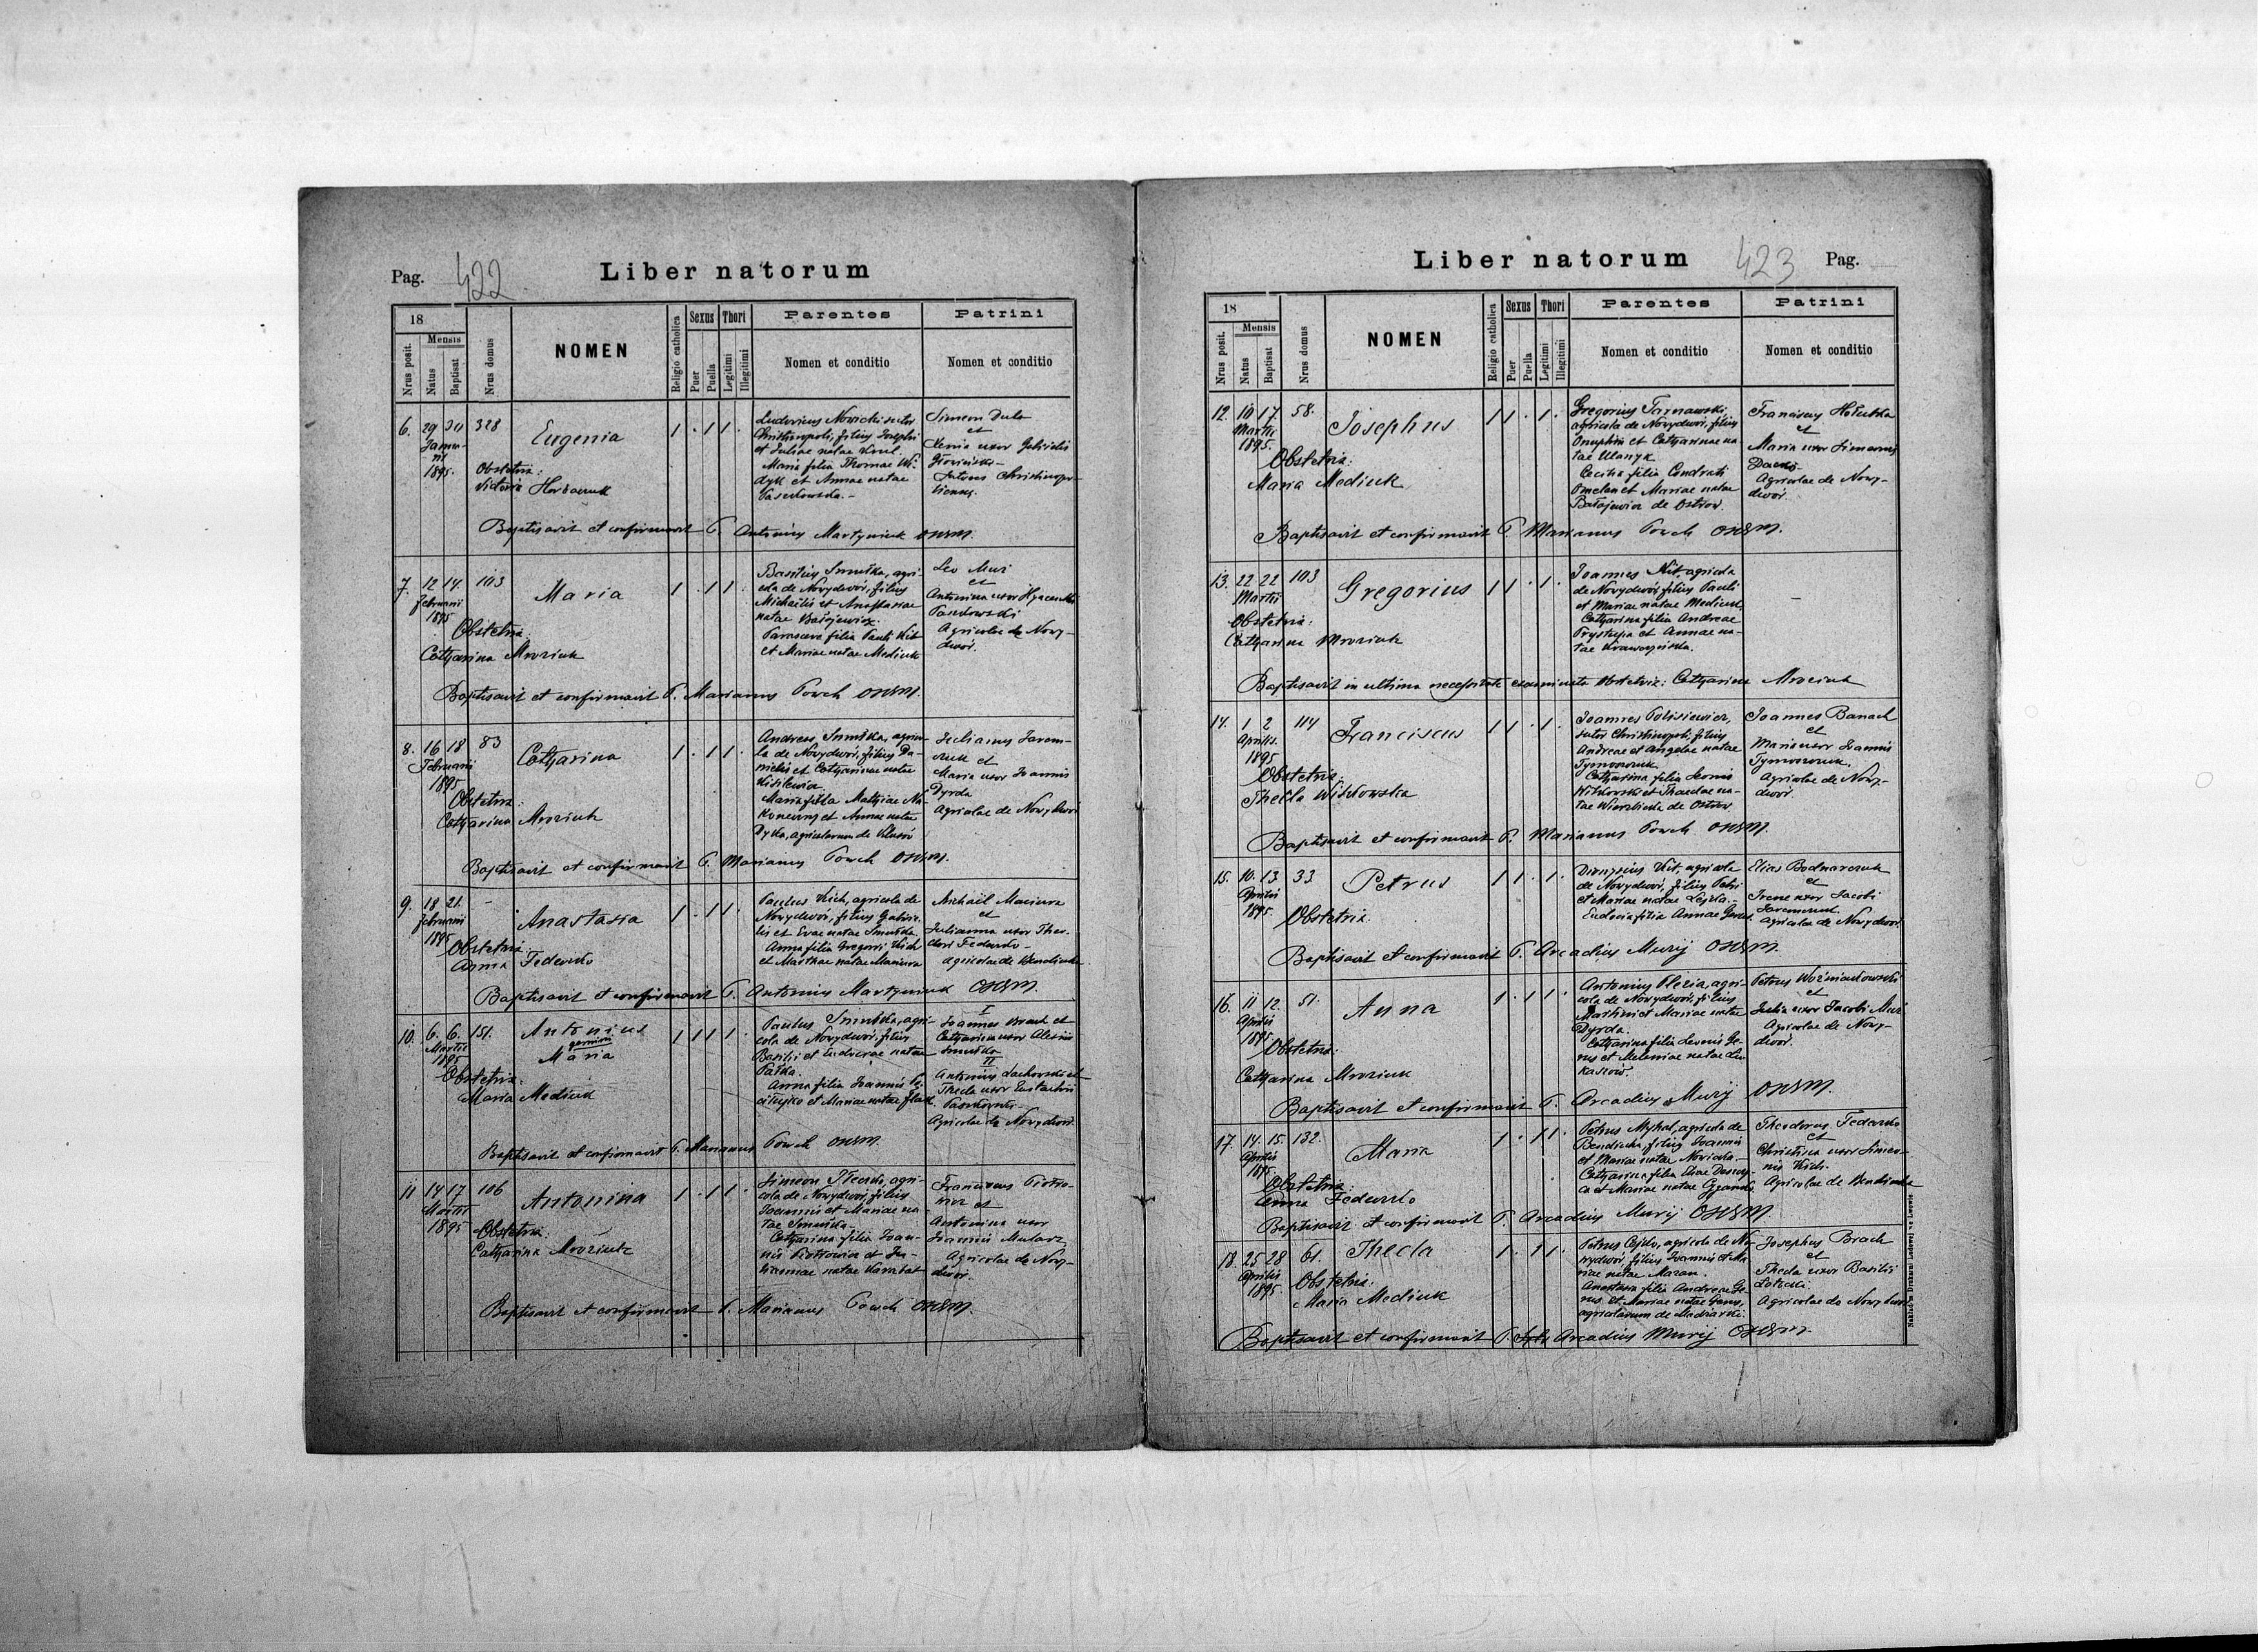 Pag. 422
Liber natorum
18
Mensis
Nrus posit.
Natus
Baptisat
Nrus domus
NOMEN
Religio catholica
Sexus
Puer
Puella
Thori
Legitimi
Illegitimi
Parentes
Nomen et conditio
Patrini
Nomen et conditio
6. 29 328 Eugenia 1 . 1 1 .
1895.
Obstetrix:
Ludovicus Nowicki sutor
Christinopoli, filius Josephi
et Juliae natae
Maria filia Thomae Wi-
dyk et Annae natae
Simeon Dula
et
Xenia uxor Gabrielis
Baptisavit et confirmavit P. Antonius Martyniuk OSBM.
7. 12 14. 103 Maria 1 . 1 1 .
Februarii
1895
Obstetrix:
Catharina Mroziuk
Basilius Smutka, agri-
cola de Novydwór, filius
Michaëlis et Anastasiae
natae Bałajewicz.
Parasceva filia Pauli Kit
et Mariae natae Mediuk
Leo Muz
et
Antonina uxor Hyacinthi
Agricolae de Nowy-
dwór.
Baptisavit et confirmavit P. Marianus Powch OSBM.
8. 16 18 83 Catharina 1 . 1 1 .
Februarii
1895
Obstetrix:
Catharina Mroziuk
Andreas Smutka, agrico-
la de Novydwór, filius Da-
nielis et Catharinae natae
Maria filia Mathiae
et Annae natae
Dyka, agricolarum de
Julianus Jarem-
czuk et
Maria uxor Joannis
Dyrda
Agricolae de Nowydwór
Baptisavit et confirmavit P. Marianus Powch OSBM.
9. 18 21. - Anastasia 1 . 1 1 .
Februarii
1895
Obstetrix:
Anna Fedeczko
Paulus Kich, agricola de
Novydwór, filius Gabrie-
lis et Evae natae Smutka.
Anna filia Gregorii Kich
et Marthae natae Maciura
Michaël Maciura
et
Julianna uxor Theo-
dori Fedeczko -
agricolae de Bendiucha
Baptisavit et confirmavit P. Antonius Martyniuk OSBM.
10. 6. 6. 151. Antonius 1 1 1 1 .
gemini
Maria
Martii
1895
Obstetrix:
Maria Mediuk
Paulus Smutka, agri-
cola de Novydwór, filius
Basilii et Eudociae natae
Pałka.
Anna filia Joannis
et Mariae natae
I
Joannes et
Catharina uxor Alexii
Smutka
II
Antonius Lachowski et
Thecla uxor Eustachii
Agricolae de Novydwór.
Baptisavit et confirmavit P. Marianus Powch OSBM.
11 14 17 106 Antonina 1 . 1 1 .
Martii
1895
Obstetrix:
Catharina Mroziuk
Simeon agri-
cola de Novydwór, filius
Joannis et Mariae na-
tae Smutka.
Catharina filia Joan-
nis Piotrowicz et Ju-
liannae natae Karabat
Franciscus Piotro-
wicz et
Antonina uxor
Joannis Mularz
Agricolae de Nowy-
dwór.
Baptisavit et confirmavit P. Marianus Powch OSBM.
Liber natorum
423 Pag.
18
Mensis
Nrus posit.
Natus
Baptisat
Nrus domus
NOMEN
Religio catholica
Sexus
Puer
Puella
Thori
Legitimi
Illegitimi
Parentes
Nomen et conditio
Patrini
Nomen et conditio
12. 10 17 58. Josephus 1 1 . 1 .
Martii
1895.
Obstetrix:
Maria Mediuk
Gregorius Tarnawski,
agricola de Novydwór, filius
Onuphrii et Catharinae na-
tae Ulanyk
Cecilia filia Condrati
Omelan et Mariae natae
Bałajewicz de Ostrów.
Franciscus Hołubka
et
Maria uxor Simeonis
Agricolae de Nowy-
dwór.
Baptisavit et confirmavit P. Marianus Powch OSBM.
13. 22 22 103 Gregorius 1 1 . 1 .
Martii
Obstetrix:
Catharina Mroziuk
Joannes Kit, agricola
de Novydwór, filius Pauli
et Mariae natae Mediuk
Catharina filia Andreae
Prystupa et Annae na-
tae Krawczyńska.
-
Baptisavit in ultima necessitate examinata Obstetrix: Catharina Mroziuk
14. 1 2 114 Franciscus 1 1 . 1 .
Aprilis.
1895
Obstetrix:
Thecla Witkowska
Joannes Polisiewicz,
sutor Christinopoli, filius
Andreae et Angelae natae
Tymoszczuk.
Catharina filia Leonis
Witkowski et Theclae na-
tae Wierzbicka de Ostrów
Joannes Banach
et
Maria uxor Joannis
Tymoszczuk.
Agricolae de Nowy-
dwór.
Baptisavit et confirmavit P. Marianus Powch OSBM.
15. 10. 13 33 Petrus 1 1 . 1 .
Aprilis
1895.
Obstetrix.
Dionysius Kit, agricola
de Novydwór, filius Petri
et Mariae natae Lejda.-
Eudocia filia Annae
Elias Bodnarczuk
et
Irene uxor Jacobi
Jaremczuk.
agricolae de Novydwór.
Baptisavit et confirmavit P. Arcadius Muryj OSBM.
16. 11 12. 51. Anna 1 . 1 1 .
Aprilis
1895
Obstetrix:
Catharina Mroziuk
Antonius agri-
cola de Novydwór, filius
Martini et Mariae natae
Dyrda.
Catharina filia Leonis Ge-
rus et Melaniae natae Łu-
kaszów.
Petrus Woźniakowski
et
Julia uxor Jacobi Muz
Agricolae de Nowy-
dwór.
Baptisavit et confirmavit P. Arcadius Muryj OSBM.
17. 14. 15. 132. Maria 1 . 1 1 .
Aprilis
1895
Obstetrix:
Anna Fedeczko
Petrus agricola de
Bendiucha, filius Joannis
et Mariae natae Nowicka.-
Catharina filia Eliae
et Mariae natae
Theodorus Fedeczko
et
Christina uxor Simeo-
nis Kich.
Agricolae de Bendiucha
Baptisavit et confirmavit P. Arcadius Muryj OSBM.
18. 25 28 61. Thecla 1 . 1 1 .
Aprilis
1895.
Obstetrix:
Maria Mediuk
Petrus agricola de No-
vydwór, filius Joannis et Ma-
riae natae Mazan.
Anastasia filia Andreae Ge-
rus et Mariae natae
agricolarum de
Josephus Brach
et
Thecla uxor Basilii
Agricolae de Nowydwór
Baptisavit et confirmavit P. Arcadius Muryj OSBM.
Nakład z Drukarni Ludowej we Lwowie.